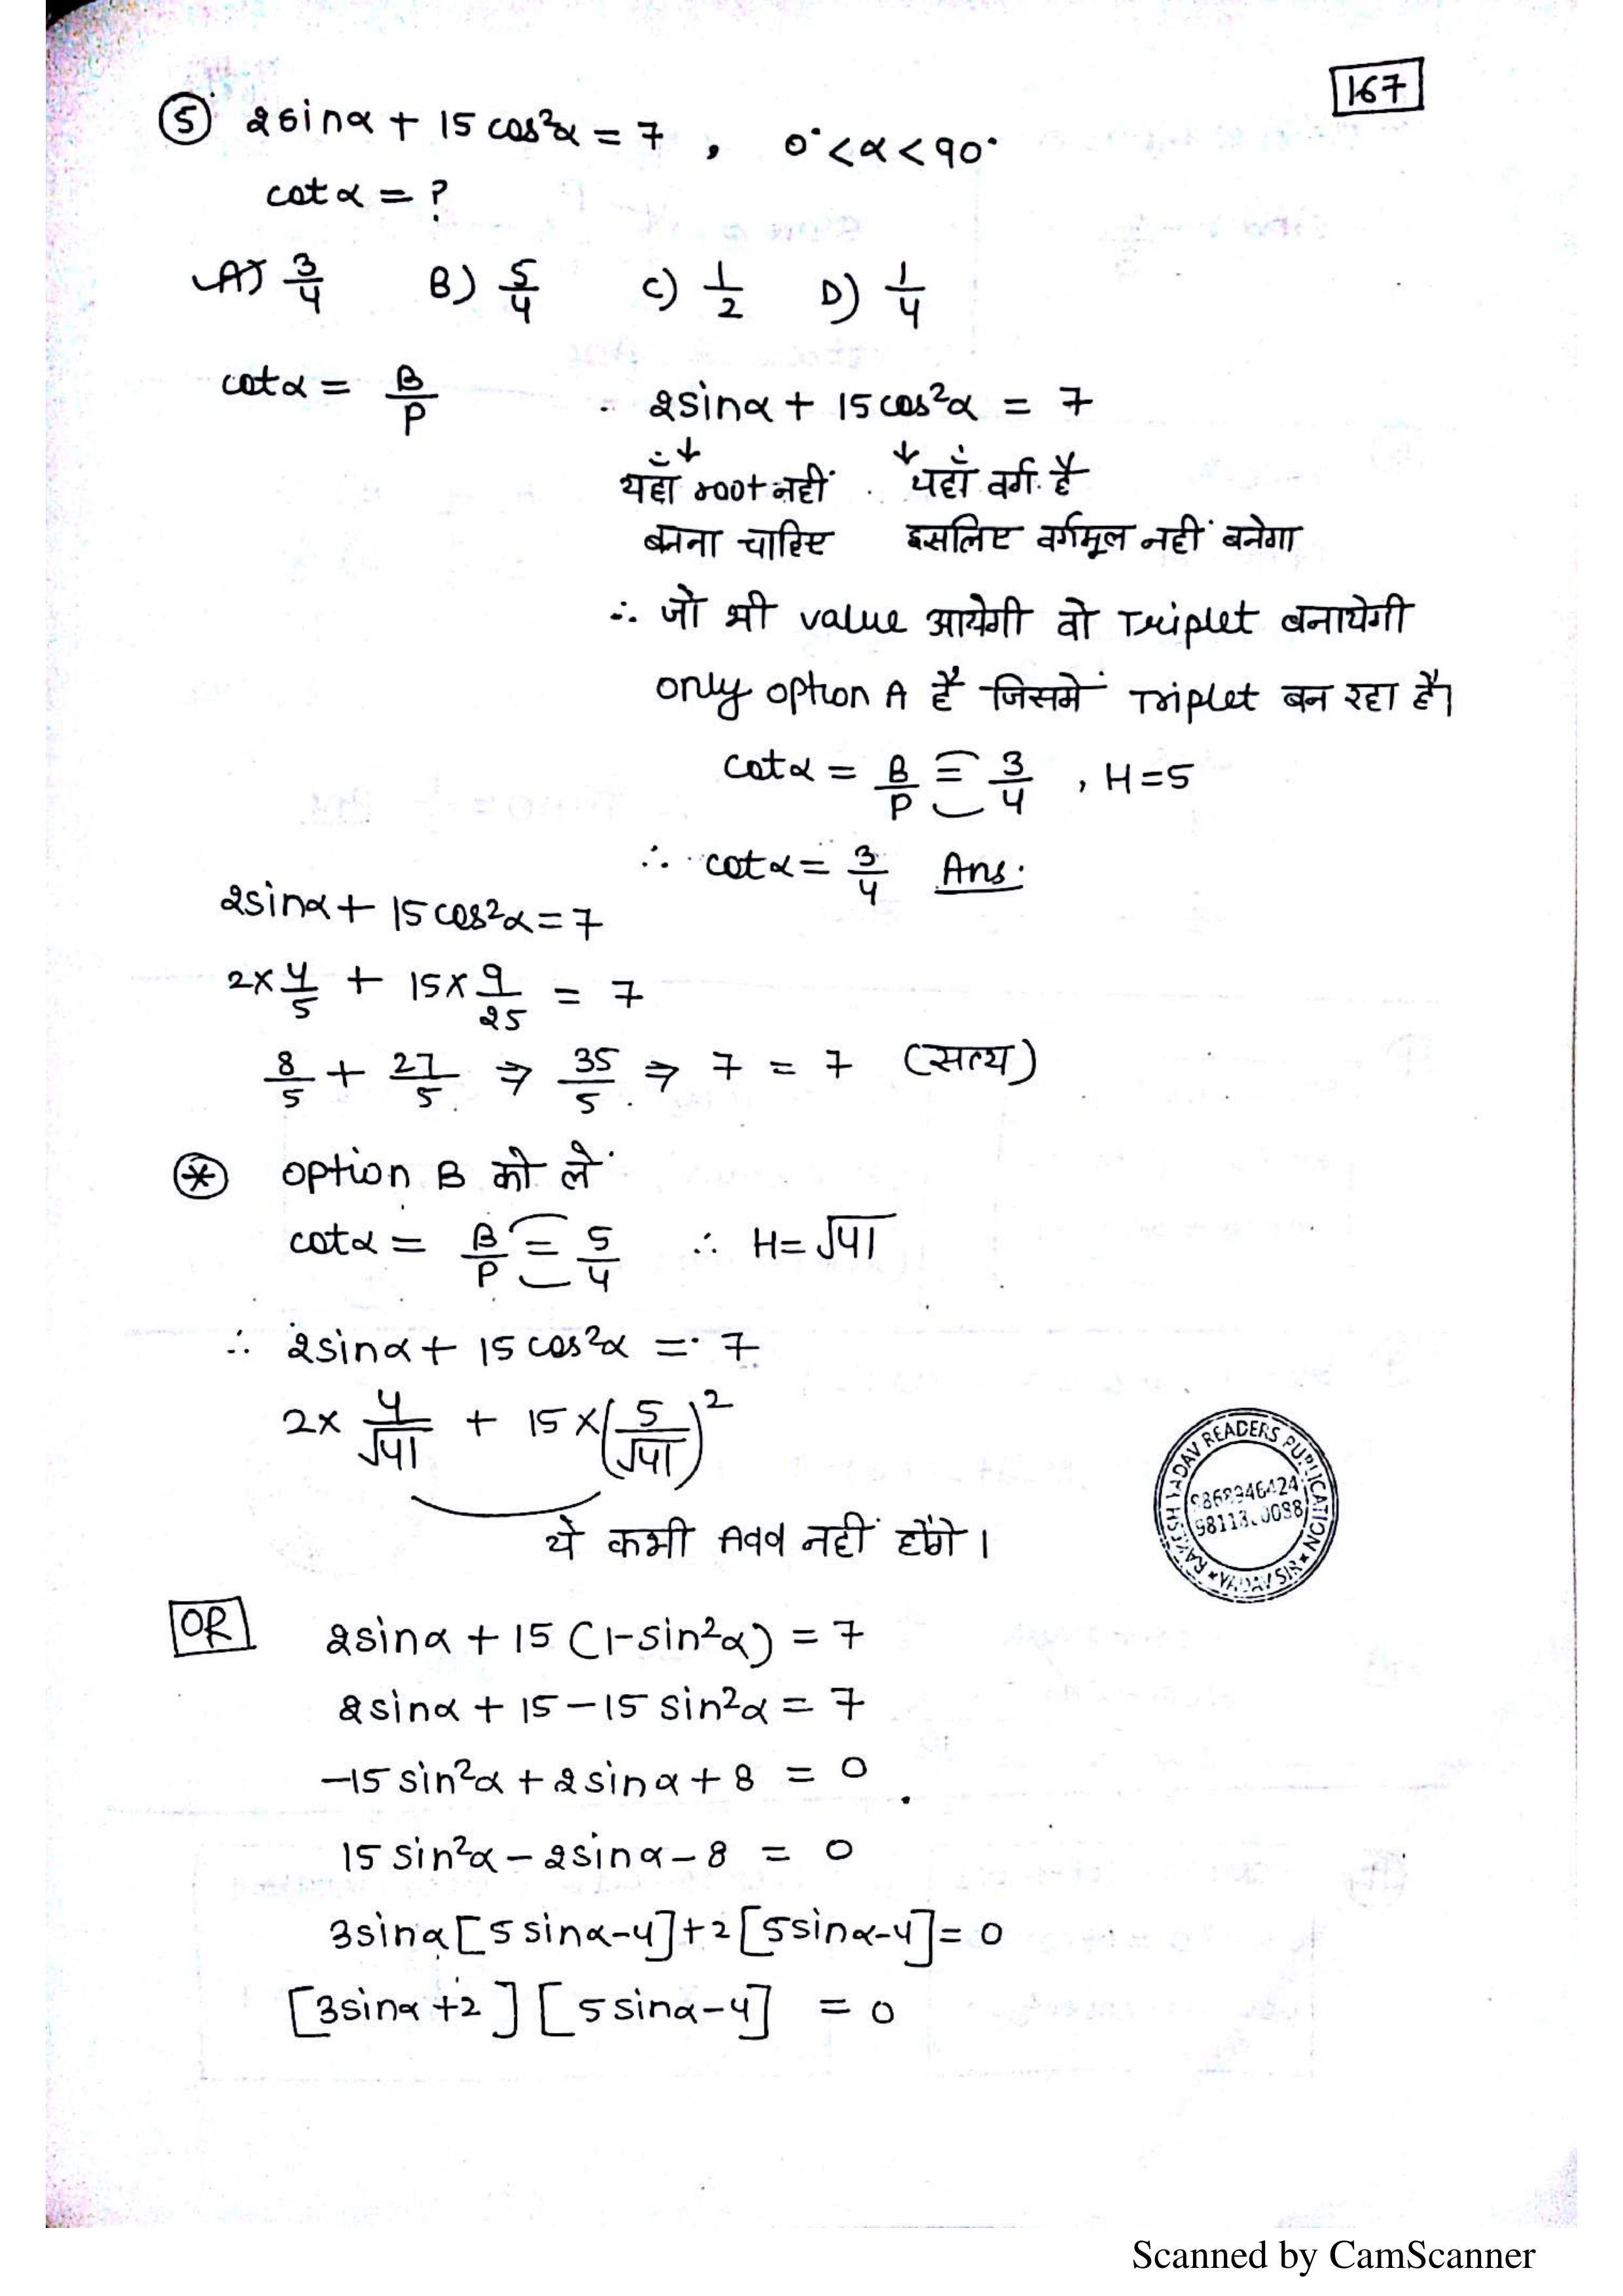 167
⑤ 2sinα + 15 cos²α = 7 , 0° < α < 90°
cot α = ?
A) 3/4 B) 5/4 C) 1/2 D) 1/4
cotα = B/P
2sinα + 15cos²α = 7
↓ ↓
यहाँ root नहीं यहाँ वर्ग है
बनना चाहिए इसलिए वर्गमूल नहीं बनेगा
∴ जो भी value आयेगी वो Triplet बनायेगी
only option A है जिसमें Triplet बन रहा है।
cotα = B/P = 3/4 , H=5
∴ cotα = 3/4 Ans.
2sinα + 15cos²α = 7
2 × 4/5 + 15 × 9/25 = 7
8/5 + 27/5 ⇒ 35/5 ⇒ 7 = 7 (सत्य)
⊛ option B को लें
cotα = B/P = 5/4 ∴ H = √41
∴ 2sinα + 15 cos²α = 7
2 × 4/√41 + 15 × (5/√41)²
ये कभी Add नहीं होंगे।
RAKESH YADAV READERS PUBLICATION
★ YADAV SIR ★
OR 2sinα + 15 (1-sin²α) = 7
2sinα + 15 - 15 sin²α = 7
-15 sin²α + 2sinα + 8 = 0
15 sin²α - 2sinα - 8 = 0
3sinα[5sinα-4]+2[5sinα-4] = 0
[3sinα+2][5sinα-4] = 0
Scanned by CamScanner